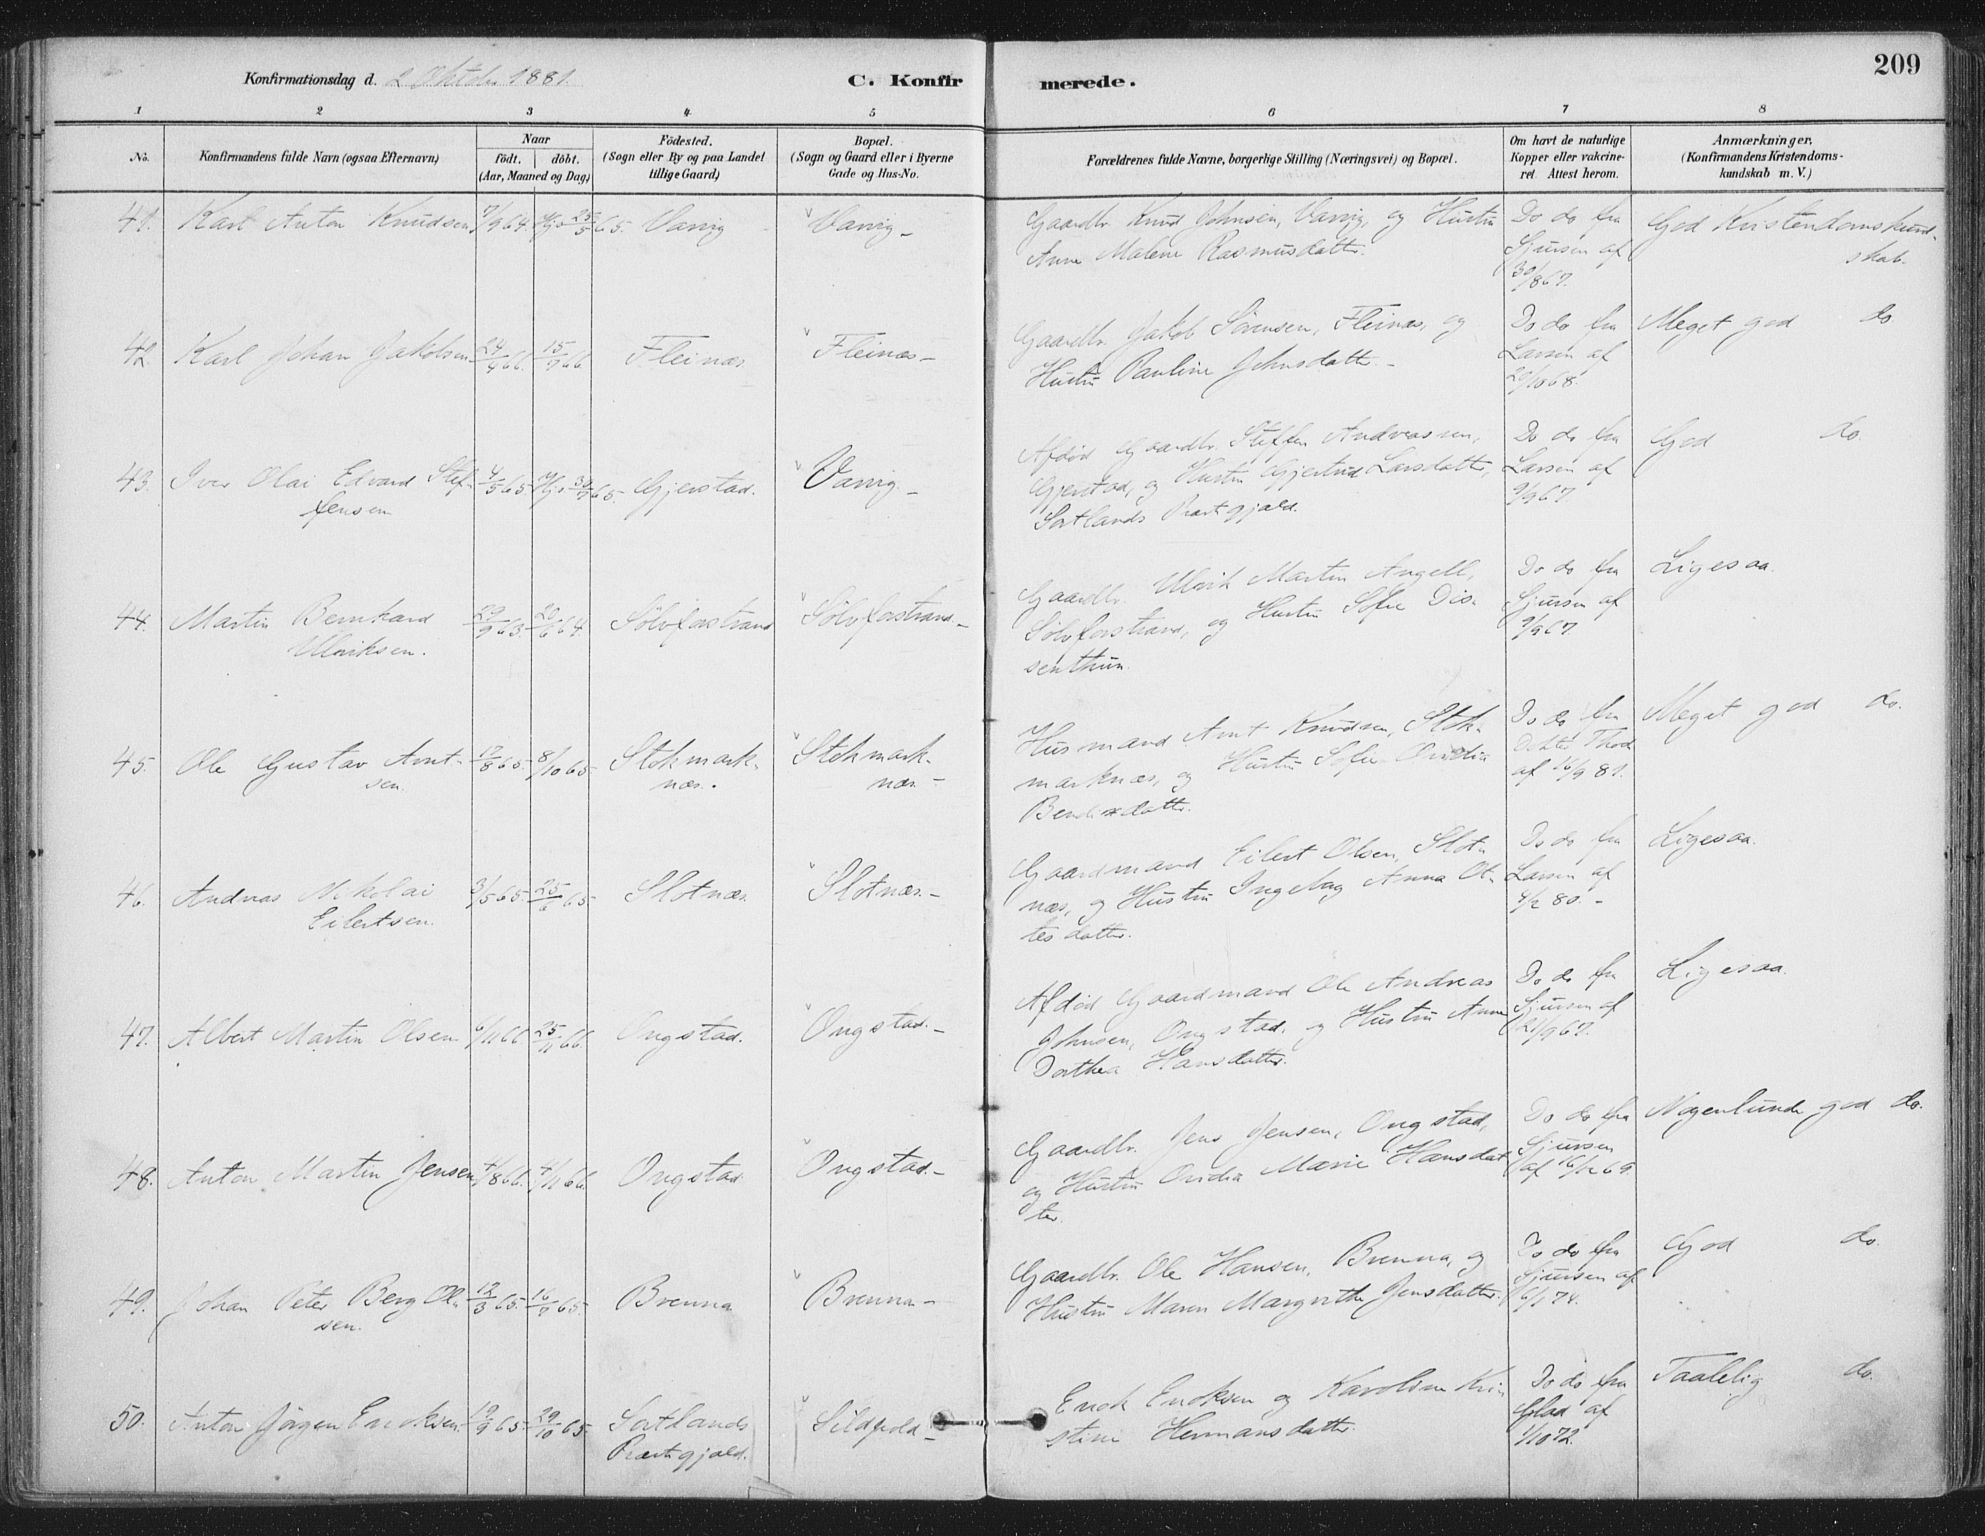 209
Konfirmationsdag d. 2 Oktober 1881.
C. Konfirmerede.
1 2 3 4 5 6 7 8
No.
Konfirmandens fulde Navn (ogsaa Efternavn)
Naar
födt. döbt.
(Aar, Maaned og Dag)
Födested.
(Sogn eller By og paa Landet
tillige Gaard)
Bopæl.
(Sogn og Gaard eller i Byerne
Gade og Hus-No.
Forældrenes fulde Navne, borgerlige Stilling (Næringsvei) og Bopæl.
Om havt de naturlige
Kopper eller vakcine-
ret. Attest herom.
Anmærkninger.
(Konfirmandens Kristendoms-
kundskab m. V.)
41. Karl Anton Knudsen 7/9 64. Hjs 25/5 65. Varvig Varvig
Gaardbr. Knud Johnsen, Varvig, og Hustru
Anne Malene Rasmusdatter.
Do do fra
Sjursen af
30/8 67.
God Kristendomskund-
skab.
42. Karl Johan Jakobsen 24/4 66. 15/7 66 Fleinæs Fleinæs
Gaardbr. Jakob Sörensen, Fleinæs, og
Hustru Pauline Johnsdatter.
Do do fra
Larsen af
20/10 68.
Meget god do
43. Iver Olai Edvard Stef-
fensen
4/5 65. Hjs 30/7 65. Gjerstad. Varvig
Afdöd Gaardbr. Steffen Andreassen,
Gjerstad, og Hustru Gjertrud Larsdatter,
Sortlands Præstegjæld.
Do do fra
Larsen af
9/9 67.
God do.
44. Martin Bernhard
Ulriksen.
29/9 63. 20/6 64. Sölvforstrand Sölvforstrand
Gaardbr. Ulrik Martin Angell,
Sölvforstrand, og Hustru Sofie Dis-
senthun.
Do do fra
Sjursen af
9/9 67.
Ligesaa.
45. Ole Gustav Arnt-
sen.
17/8 65. 8/10 65. Stokmark-
næs.
Stokmark-
næs.
Husmand Arnt Knudsen, Stok-
marknæs, og Hustru Sofie Ovidia
Bendixdatter.
Do do fra
Dokter Thod
af 16/9 81.
Meget god do.
46. Andreas Nikolai
Eilertsen.
3/5 65. 25/6 65. Slotnæs Slotnæs
Gaardmand Eilert Olsen, Slot-
næs, og Hustru Ingebog Anna Ot-
tesdatter.
Do do fra
Larsen af
4/2 80.
Ligesaa.
47. Albert Martin Olsen 6/11 66 25/11 66 Ongstad. Ongstad.
Afdöd Gaardmand Ole Andreas
Johnsen, Ongstad. og Hustru Anne
Dorthea Hansdatter.
Do do fra
Sjursen af
21/9 67.
Ligesaa.
48. Anton Martin Jensen 4/8 66. 4/11 66. Ongstad Ongstad
Gaardbr. Jens Jensen, Ongstad,
og Hustru Ovidia Marie Hansdat
ter.
Do do fra
Sjursen
af 16/12 69.
Nogenlunde god do.
49. Johan Peter Berg Ol-
sen.
12/3 65. 16/7 65. Brenna Brenna
Gaardbr. Ole Hansen, Brenna, og
Hustru Maren Margrethe Jensdatter.
Do do fra
Sjursen af
6/1 74.
God do.
50. Anton Jörgen Enoksen 19/9 65. 29/10 65. Sortlands
Præstegjæld.
Sildpold
Enok Enoksen og Karoline Kri
stine Hermansdatter.
Do do fra
Glad af
1/10 72.
Taalelig do.